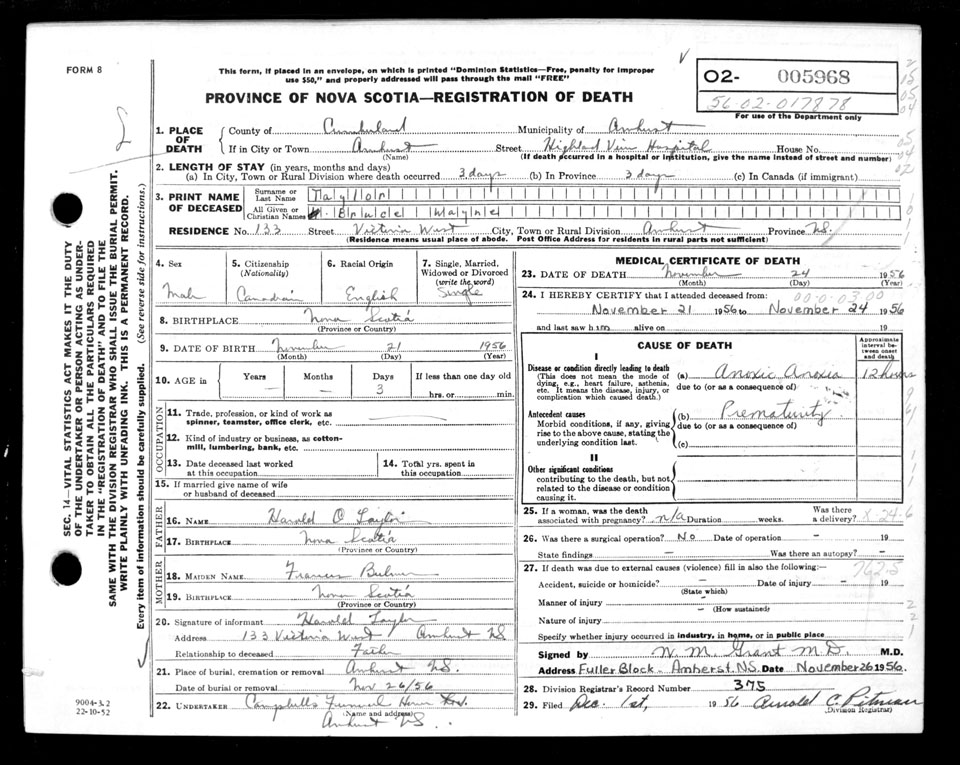 FORM 8
This form, if placed in an envelope, on which is printed "Dominion Statistics—Free, penalty for improper
use $50," and properly addressed will pass through the mail "FREE"
PROVINCE OF NOVA SCOTIA—REGISTRATION OF DEATH
O2- 005968
56-02-017878
For use of the Department only
1. PLACE OF DEATH
County of Cumberland Municipality of Amherst
If in City or Town Amherst Street Highland View Hospital House No.
(Name) (If death occurred in a hospital or institution, give the name instead of street and number)
2. LENGTH OF STAY (in years, months and days)
(a) In City, Town or Rural Division where death occurred 3 days (b) In Province 3 days (c) In Canada (if immigrant)
3. PRINT NAME OF DECEASED
Surname or Last Name Taylor
All Given or Christian Names Bruce Wayne
RESIDENCE No. 133 Street Victoria West City, Town or Rural Division Amherst Province NS.
(Residence means usual place of abode. Post Office Address for residents in rural parts not sufficient)
4. Sex Male
5. Citizenship (Nationality) Canadian
6. Racial Origin English
7. Single, Married, Widowed or Divorced (write the word) Single
8. BIRTHPLACE Nova Scotia
(Province or Country)
9. DATE OF BIRTH November 21 1956
(Month) (Day) (Year)
10. AGE in Years — Months — Days 3 If less than one day old
hrs. or min.
OCCUPATION
11. Trade, profession, or kind of work as
spinner, teamster, office clerk, etc.
12. Kind of industry or business, as cotton-
mill, lumbering, bank, etc.
13. Date deceased last worked
at this occupation
14. Total yrs. spent in
this occupation
15. If married give name of wife
or husband of deceased
FATHER
16. NAME Harold O Taylor
17. BIRTHPLACE Nova Scotia
(Province or Country)
MOTHER
18. MAIDEN NAME Frances
19. BIRTHPLACE Nova Scotia
(Province or Country)
20. Signature of informant Harold Taylor
Address 133 Victoria West Amherst NS
Relationship to deceased Father
21. Place of burial, cremation or removal Amherst NS.
Date of burial or removal Nov 26/56
22. UNDERTAKER Campbell's Funeral Home Ltd.
(Name and address)
Amherst NS.
MEDICAL CERTIFICATE OF DEATH
23. DATE OF DEATH November 24 1956
(Month) (Day) (Year)
24. I HEREBY CERTIFY that I attended deceased from:
November 21 1956 to November 24 1956
and last saw him alive on 19
CAUSE OF DEATH
Approximate interval between onset and death
I
Disease or condition directly leading to death
(This does not mean the mode of
dying, e.g., heart failure, asthenia,
etc. It means the disease, injury, or
complication which caused death.)
(a) Anoxic Anoxia 12 hours
due to (or as a consequence of)
Antecedent causes
Morbid conditions, if any, giving
rise to the above cause, stating the
underlying condition last.
(b) Prematurity.
due to (or as a consequence of)
(c)
II
Other significant conditions
contributing to the death, but not
related to the disease or condition
causing it.
25. If a woman, was the death
associated with pregnancy? n/a Duration weeks. Was there a delivery?
26. Was there a surgical operation? No Date of operation — 19
State findings — Was there an autopsy? -
27. If death was due to external causes (violence) fill in also the following:— 762.5
Accident, suicide or homicide? — Date of injury — 19
(State which)
Manner of injury —
(How sustained)
Nature of injury —
Specify whether injury occurred in industry, in home, or in public place
Signed by W. M. Grant M.D. M.D.
Address Fuller Block - Amherst, NS. Date November 26 1956.
28. Division Registrar's Record Number 375
29. Filed Dec. 1st, 1956 Arnold C. Pitman
(Division Registrar)
SEC. 14—VITAL STATISTICS ACT MAKES IT THE DUTY
OF THE UNDERTAKER OR PERSON ACTING AS UNDER-
TAKER TO OBTAIN ALL THE PARTICULARS REQUIRED
IN THE "REGISTRATION OF DEATH" AND TO FILE THE
SAME WITH THE DIVISION REGISTRAR WHO SHALL ISSUE THE BURIAL PERMIT.
WRITE PLAINLY WITH UNFADING INK. THIS IS A PERMANENT RECORD.
Every item of information should be carefully supplied. (See reverse side for instructions.)
9004-3.2
22-10-52